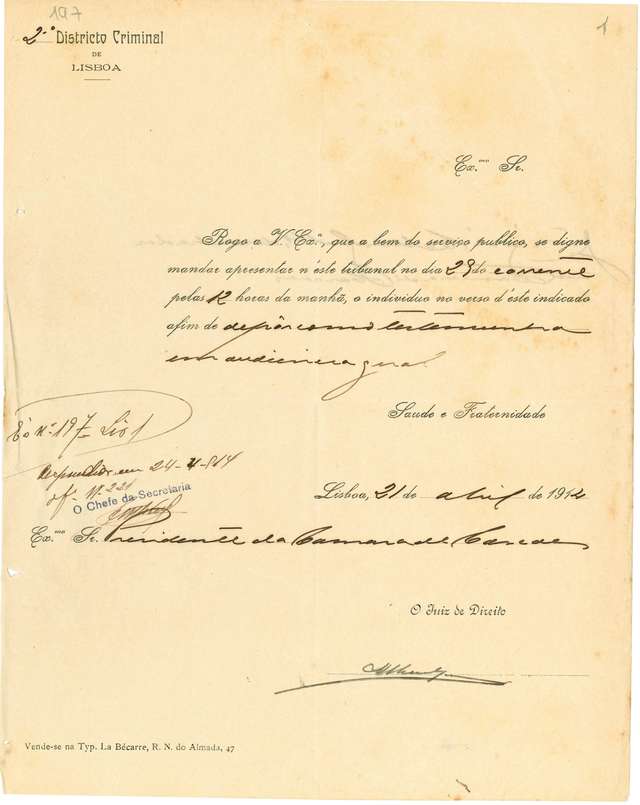 197
1
2.º Districto Criminal
DE
LISBOA
Ex.mo Sr.
Rogo a V. Ex.ª, que a bem do serviço publico, se digne
mandar apresentar n'éste tribunal no dia 29 do corrente
pelas 12 horas da manhã, o individuo no verso d'éste indicado
afim de depôr como testemunha
em audiencia geral.
Saude e Fraternidade
E o nº 197
Respondido em 24-4-914
of. Nº 221
O Chefe da Secretaria
Lisboa, 21 de abril de 1914
Ex.mo Sr. Presidente da Camara de Cascaes
O Juiz de Direito
Vende-se na Typ. La Bécarre, R. N. do Almada, 47